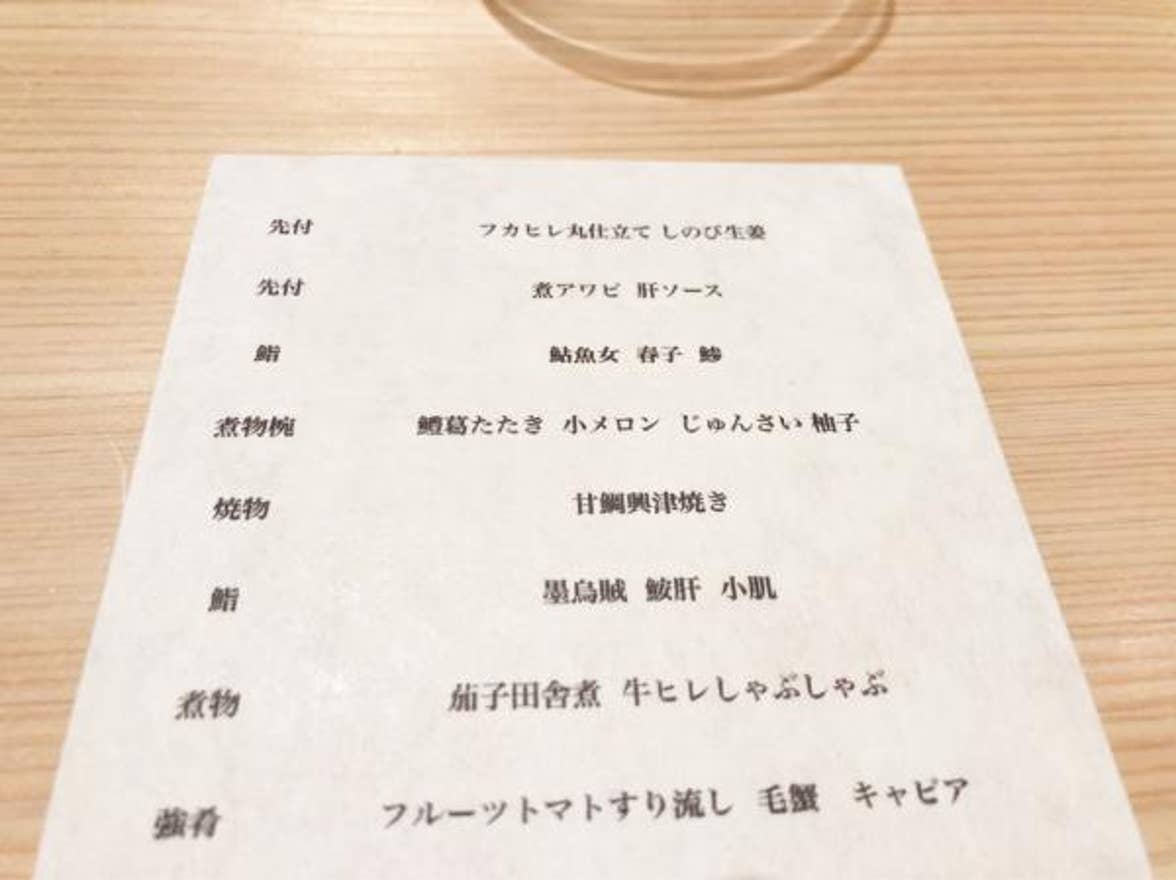 先付 フカヒレ丸仕立て しのび生姜
先付 煮アワビ 肝ソース
鮨 鮎魚女 春子 鯵
煮物椀 鱧葛たたき 小メロン じゅんさい 柚子
焼物 甘鯛興津焼き
鮨 墨烏賊 鮟肝 小肌
煮物 茄子田舎煮 牛ヒレしゃぶしゃぶ
強肴 フルーツトマトすり流し 毛蟹 キャビア